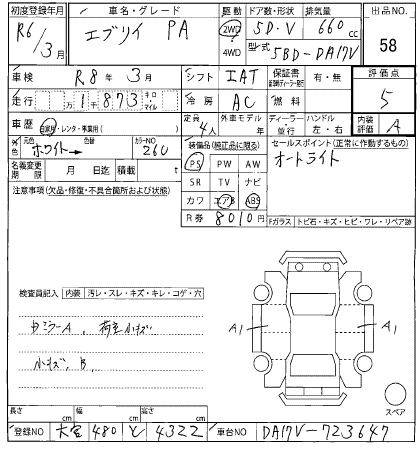 初度登録年月 車名・グレード 駆動 ドア数・形状 排気量 出品NO.
R6/3月 エブリイ PA 2WD 4WD 5D・V 660cc 58
型式 5BD-DA17V
車検 R8年3月 シフト IAT 保証書 有・無 評価点
走行 万1千873キロ マイル 冷房 AC 燃料 5
車歴 自家用・レンタ・事業用( ) 定員 4人 外車モデル 年 ディーラー 並行 ハンドル 左・右 内装評価 A
外色 元色 ホワイト→ 色替 カラーNO 26U 装備品(純正品に限る) セールスポイント(正常に作動するもの)
名義変更期限 月 日迄 積載 t PS PW AW オートライト
注意事項(欠品・修復・不具合箇所および状態) SR TV ナビ
カワ エアB ABS
R券 8010円 Fガラス トビ石・キズ・ヒビ・ワレ・リペア跡
検査員記入 内装 汚レ・スレ・キズ・キレ・コゲ・穴
中ミラーA、荷室小キズ
小キズ、B、
A1 A1
スペア
長さ cm 幅 cm 高さ cm
登録NO 大宮 480 と 4322 車台NO DA17V-723647